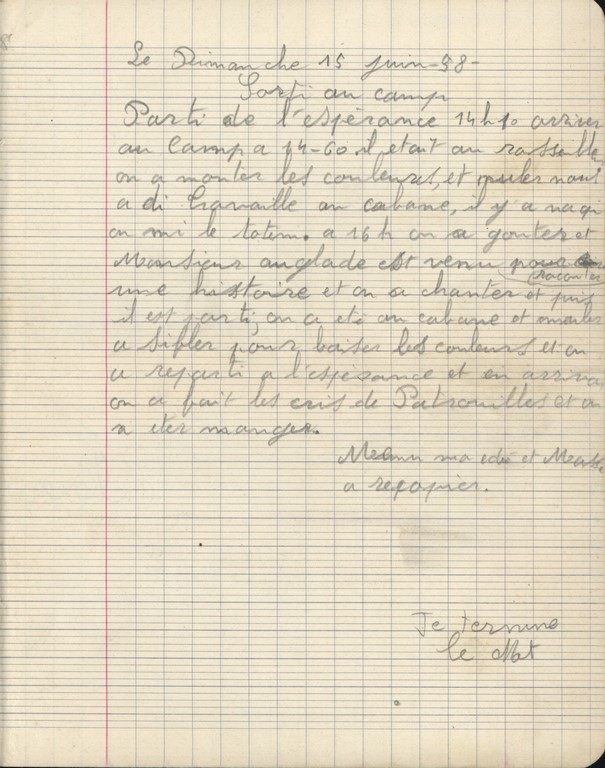 Le Dimanche 15 juin-58-
Sorti au camp
Parti de l'espèrance 14h10 arriver
au Camp a 14-60 il etait au rassemble
on a monter les couleurs, et muler nous
a di travaille au cabane, il y a
on mi le totem. a 16h on a gouter et
Monsieur anglade est venu pour
raconter
une histoire et on a chanter et puis
il est parti, on a eté au cabane et muler
a sifler pour baiser les couleurs et on
a reparti a l'espèrance et en arrivan
on a fait les cris de Patrouilles et on
a eter manger.
ma edé et
a recopier.
Je termine
le